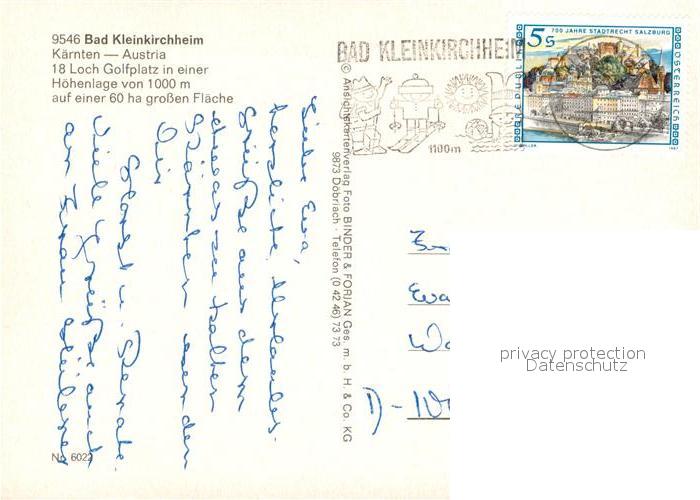 9546 Bad Kleinkirchheim
Kärnten — Austria
18 Loch Golfplatz in einer
Höhenlage von 1000 m
auf einer 60 ha großen Fläche
BAD KLEINKIRCHHEIM
1100m
5 S
700 JAHRE STADTRECHT SALZBURG
REPUBLIK
ÖSTERREICH
1987
© Ansichtskartenverlag Foto BINDER & FORJAN Ges. m. b. H. & Co. KG
9873 Döbriach · Telefon (0 42 46) 73 73
Liebe Eva,
herzliche Urlaubs-
grüße aus dem
etwas zu kalten
Kärnten senden
Dir
u. Renate.
Viele Grüße auch
an
Eva
D-
privacy protection
Datenschutz
Nr. 6022